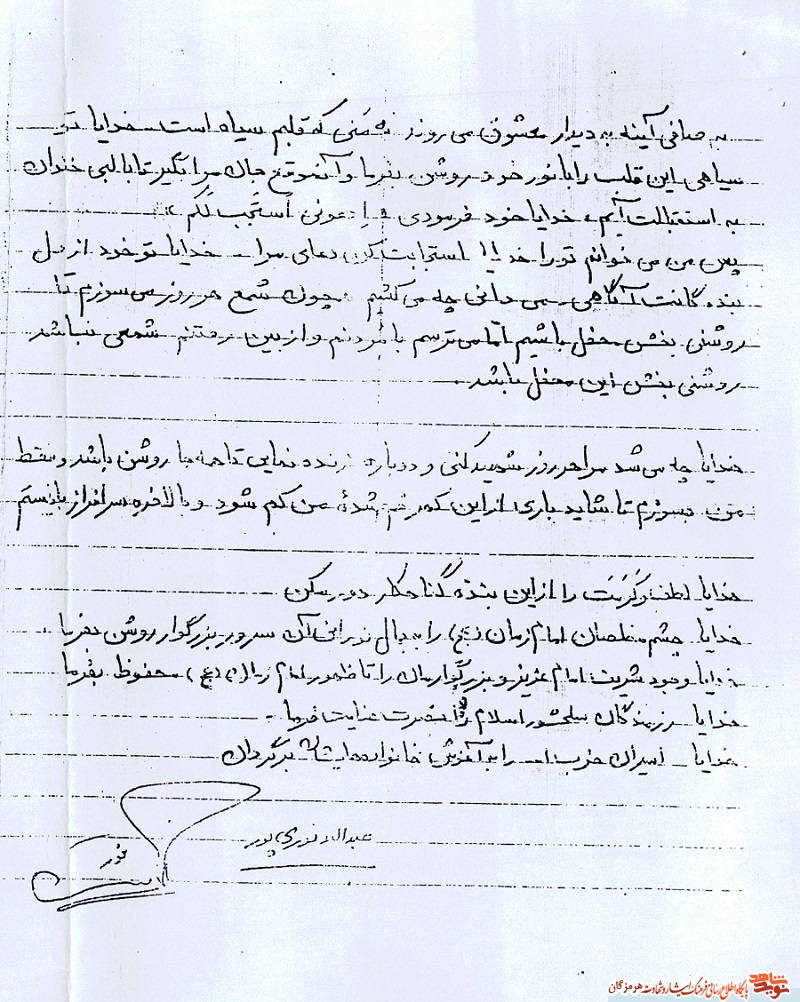 به صافی آینه به دیدار معشوق می روند نه منی که قلبم سیاه است خدایا تو
سیاهی این قلب را با نور خود روشن بفرما و آنموقع جان مرا بگیر تا با لبی خندان
به استقبالت آیم، خدایا خود فرمودی «اِدعونی اَستَجِب لَکُم»
پس من می خوانم تو را خدایا استجابت کن دعای مرا خدایا تو خود از دل
بنده گانت آگاهی می دانی چه می کشیم چون شمع هر روز می سوزم تا
روشنی بخش محفل باشیم اما می ترسم با مُردنم و از بین رفتنم شمعی نباشد
روشنی بخش این محفل باشد.
خدایا چه می شد مرا هر روز شهید کنی و دوباره زنده نمایی تا همه جا روشن باشد و فقط
من بسوزم تا شاید باری از این کمر خم شدهٔ من کم شود و بالاخره سرافراز بایستم
خدایا لطف و کَرَمَت را از این بنده گناهکار دور مکن
خدایا چشم مخلصان امام زمان (عج) را به جمال نورانی آن سرور بزرگوار روشن بفرما.
خدایا وجود شریف امام عزیز و بزرگوارمان را تا ظهور امام زمان (عج) محفوظ بفرما
خدایا رزمندگان سلحشور اسلام را نصرت عنایت فرما.
خدایا اسیران حزب اله را به آغوش خانواده ایشان برگردان
عبداله نوری پور
نوید شاهد پایگاه اطلاع رسانی فرهنگ ایثار و شهادت هرمزگان